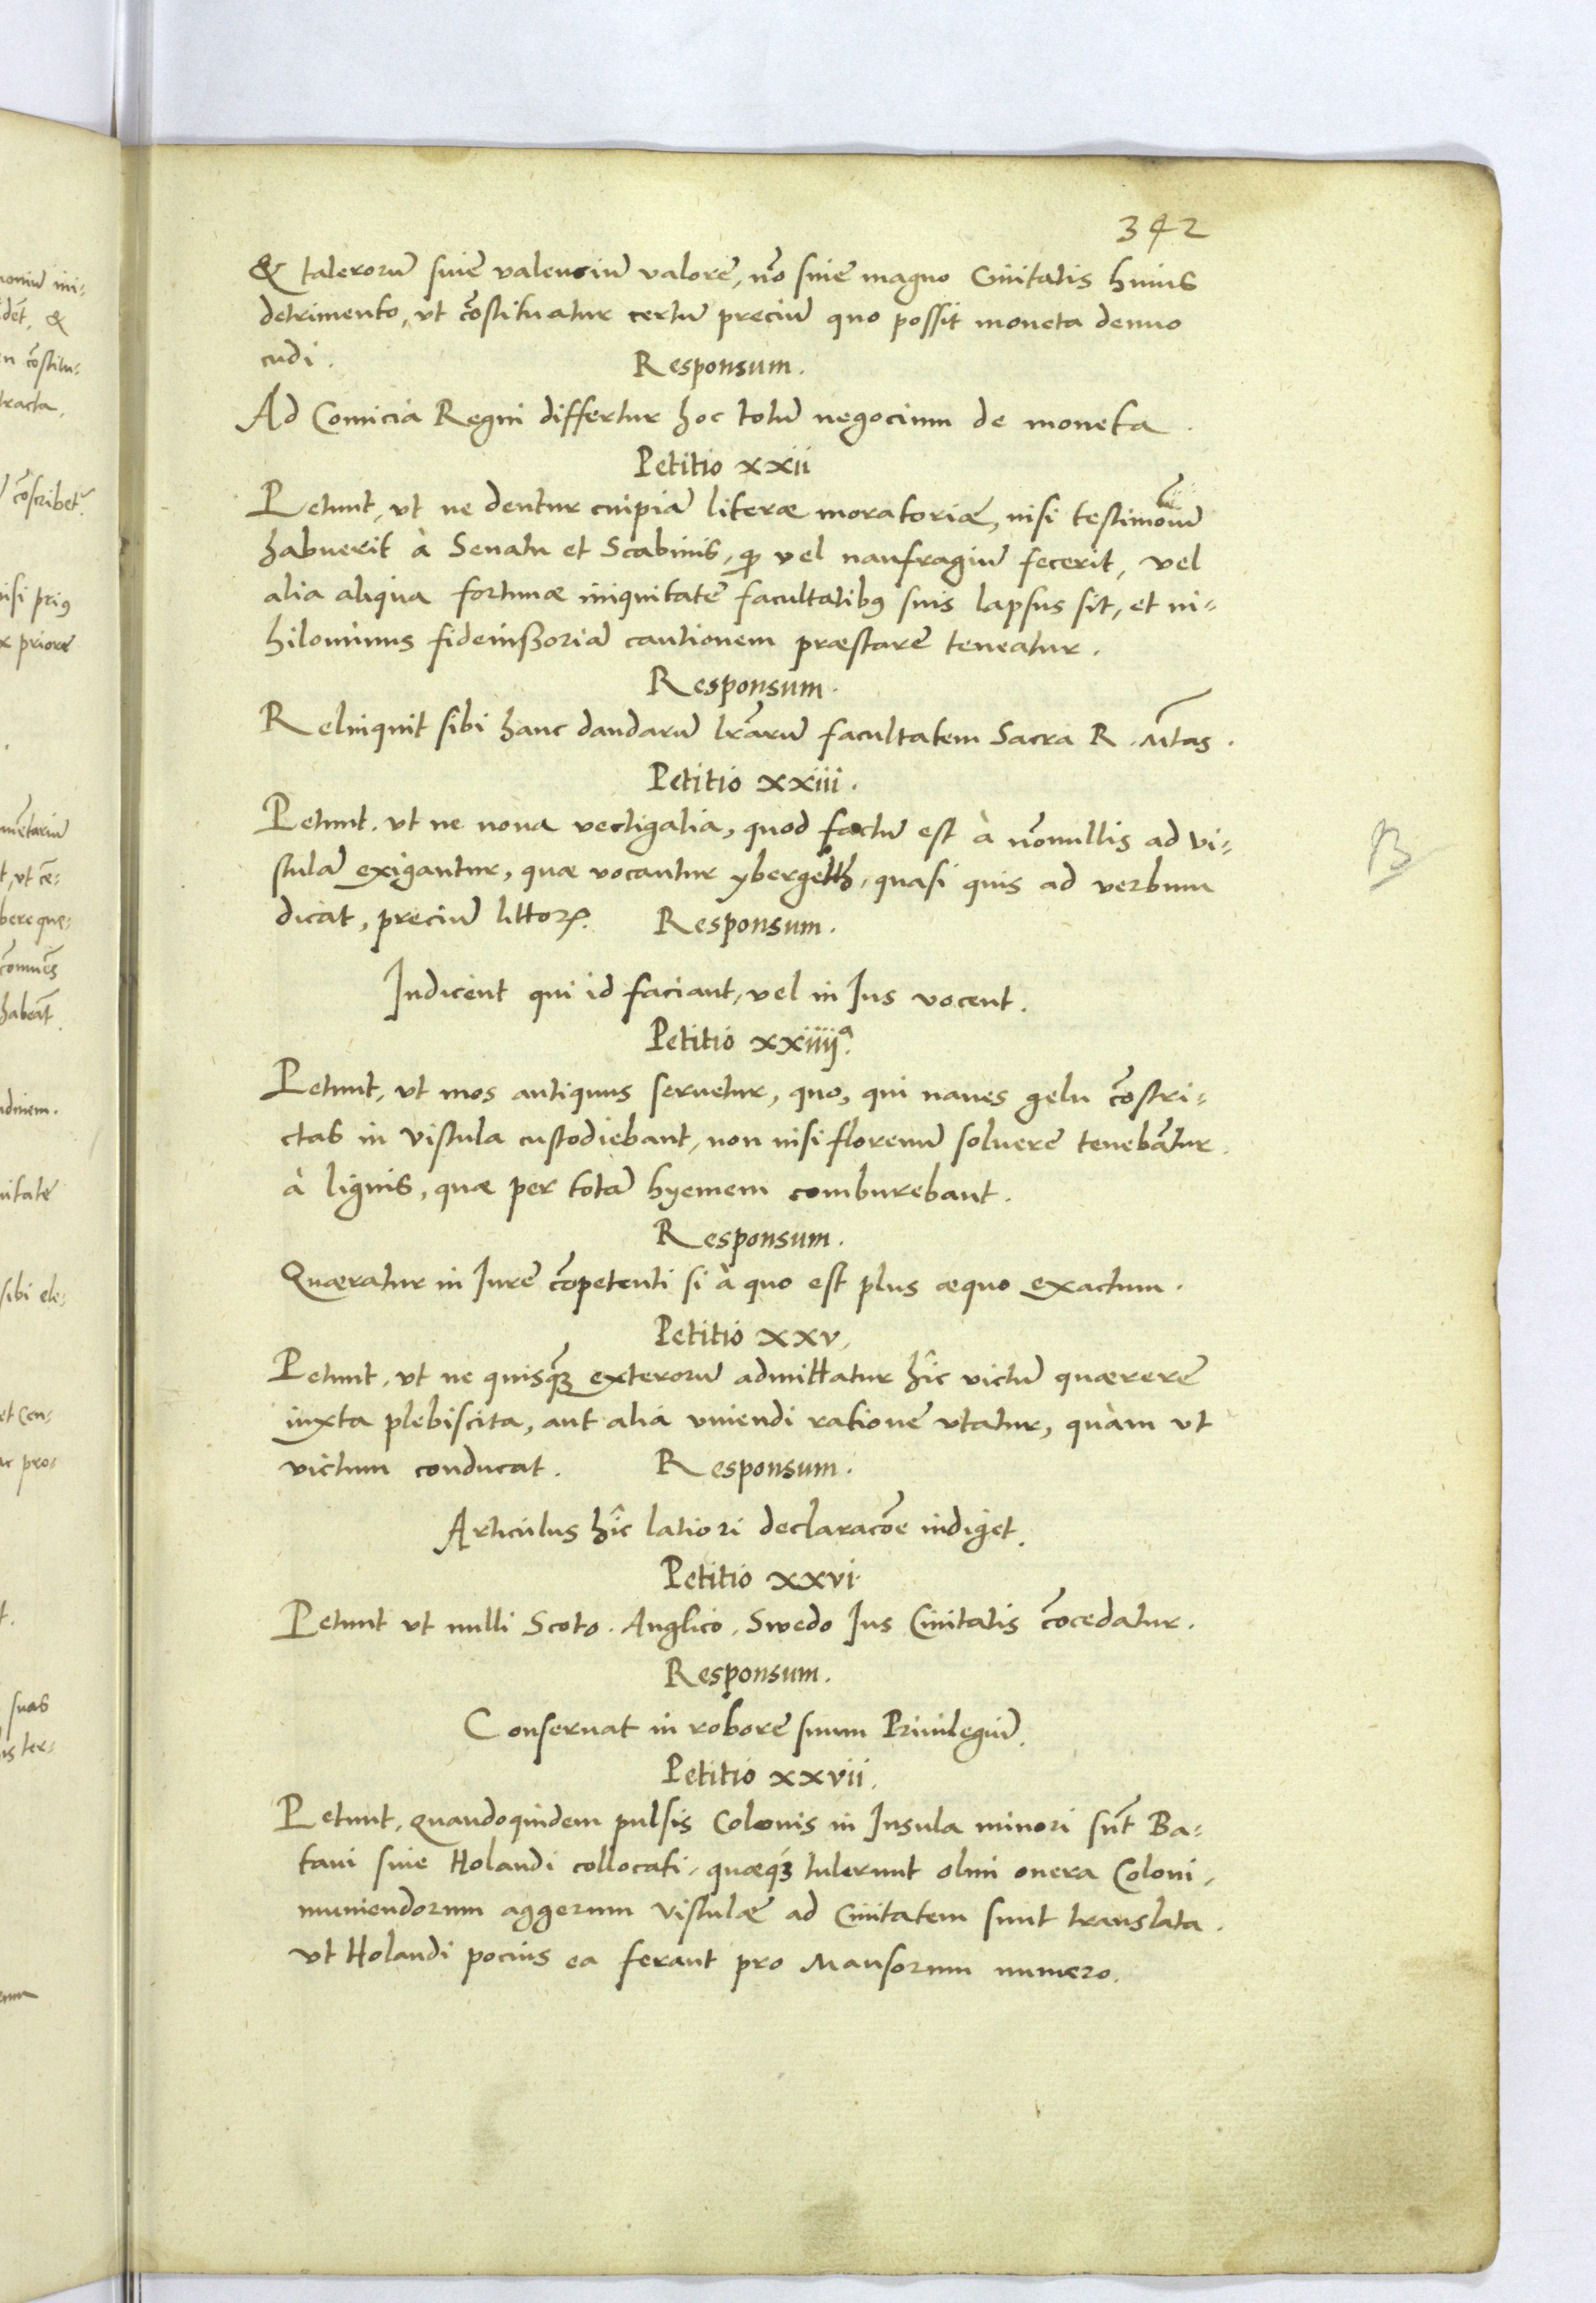 342
& talerorũ sive valenciũ valorẽ, nõ sine magno Civitatis huius
detrimento, ut cõstituatur certũ preciũ quo possit moneta denuo
cudi. Responsum.
Ad Comicia Regni differtur hoc totũ negocium de moneta.
Petitio xxii
Petunt, ut ne dentur cuipiã literæ moratoriæ, nisi testimoniũ
habuerit à Senatu et Scabinis, ꝙ vel naufragiũ fecerit, vel
alia aliqua fortunæ iniquitatẽ facultatibꝰ suis lapsus sit, et ni-
hilominus fideiußoriã cautionem præstare teneatur.
Responsum.
Relinquit sibi hanc dandarũ lr̃arũ facultatem Sacra R. Mtas.
Petitio xxiii.
Petunt, ut ne nova vectigalia, quod factũ est à nõnullis ad Vi-
stulã exigantur, quæ vocantur ybergelth, quasi quis ad verbum
dicat, preciũ littorꝭ. Responsum.
Indicent qui id faciant, vel in Ius vocent.
Petitio xxiiijª.
Petunt, ut mos antiquus servetur, quo, qui naves gelu cõstri-
ctas in Vistula custodiebant, non nisi florenũ solvere tenebãtur
à lignis, quæ per totã hyemem comburebant.
Responsum.
Quæratur in Iure cõpetenti si à quo est plus æquo exactum.
Petitio xxv.
Petunt, ut ne quisq̃ȝ exterorũ admittatur hîc victũ quærere
iuxta plebiscita, aut alia vivendi rationẽ utatur, quàm ut
victum conducat. Responsum.
Articulus hîc latiori declaracõe indiget.
Petitio xxvi.
Petunt ut nulli Scoto. Anglico. Swedo Ius Civitatis cõcedatur.
Responsum.
Conservat in robore suum Privilegiũ.
Petitio xxvii.
Petunt, quandoquidem pulsis Colonis in Insula minori sũt Ba-
tavi sive Holandi collocati, quæqȝ tulerunt olim onera Coloni,
muniendorum aggerum Vistulæ ad Civitatem sunt translata.
ut Holandi pocius ea ferant pro Mansorum numero.